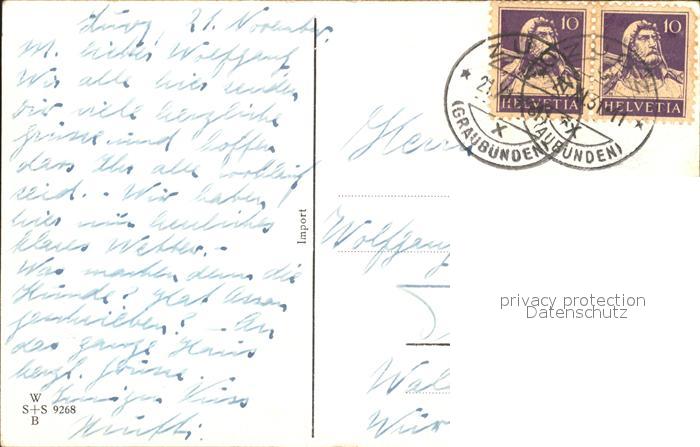 21. November
M. lieber Wolfgang
Wir alle hier senden
dir viele herzliche
Grüsse und hoffen
dass Ihr alle wohlauf
seid. - Wir haben
hier nun herrliches
klares Wetter. -
Was machen denn die
Hunde? Hat
geschrieben? - An
das ganze Haus
herzl. Grüsse.
Innigen Kuss
W
S+S 9268
B
Import
10
HELVETIA
10
HELVETIA
(GRAUBÜNDEN)
(GRAUBÜNDEN)
Herrn
Wolfgang
privacy protection
Datenschutz